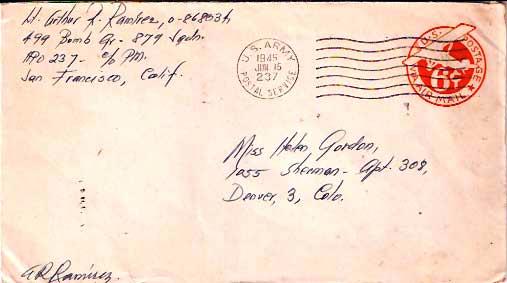 Lt. Arthur R. Ramirez, O-868534
499 Bomb Gr. - 879 Sqdn.
APO 237 - c/o PM.
San Francisco, Calif.
U.S. ARMY
1945
JUN 15
237
POSTAL SERVICE
U.S. POSTAGE
6¢
VIA AIR MAIL
Miss Helen Gordon,
1055 Sherman - Apt. 308,
Denver, 3, Colo.
A R Ramirez